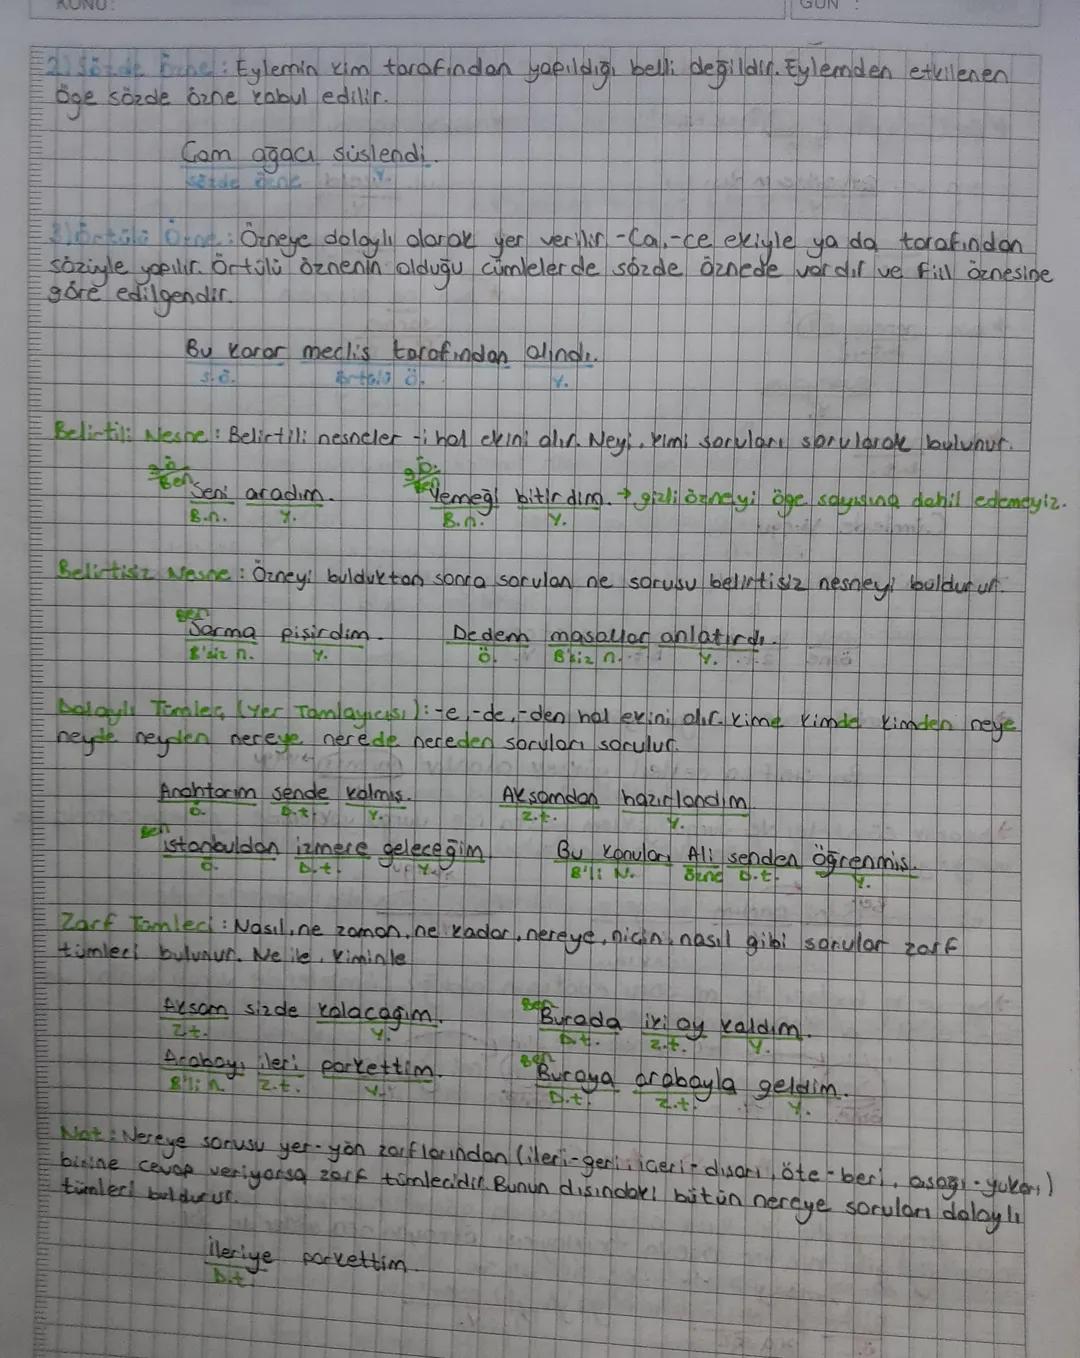 KONU:
GÜN :
2) Sözde Özne: Eylemin kim tarafından yapıldığı belli değildir. Eylemden etkilenen
öge sözde özne kabul edilir.
Çam ağacı süslendi.
sözde özne Y.
3) Örtülü Özne: Özneye dolaylı olarak yer verilir -ca, -ce ekiyle ya da tarafından
sözüyle yapılır. Örtülü öznenin olduğu cümlelerde sözde öznede vardır ve fiil öznesine
göre edilgendir.
Bu karar meclis tarafından alındı.
S.ö. örtülü ö. Y.
Belirtili Nesne: Belirtili nesneler -i hal ekini alır. Neyi, kimi soruları sorularak bulunur.
g.ö. g.ö.
Ben Seni aradım. Ben Yemeği bitirdim. → gizli özneyi öge sayısına dahil edemeyiz.
B.n. Y. B.n. Y.
Belirtisiz Nesne: Özneyi bulduktan sonra sorulan ne sorusu belirtisiz nesneyi buldurur.
Ben
Sarma pişirdim. Dedem masallar anlatırdı.
B'siz n. Y. Ö. B'siz n. Y.
Dolaylı Tümleç (Yer Tamlayıcısı): -e, -de, -den hal ekini alır. kime kimde kimden neye
neyde neyden nereye nerede nereden soruları sorulur.
Anahtarım sende kalmış. Akşamdan hazırlandım.
Ö. D.t. Y. Z.t. Y.
Ben
istanbuldan izmire geleceğim. Bu konuları Ali senden öğrenmiş.
Ö. D.t. Y. B'li N. Özne D.t. Y.
Zarf Tümleci: Nasıl, ne zaman, ne kadar, nereye, niçin, nasıl gibi sorular zarf
tümleci bulunur. Ne ile, kiminle
Akşam sizde kalacağım. Ben Burada iki ay kaldım.
Z.t. Y. D.t. Z.t. Y.
Arabayı ileri parkettim. Ben Buraya arabayla geldim.
B'li n. Z.t. Y. D.t. Z.t. Y.
Not: Nereye sorusu yer-yön zarflarından (ileri-geri, içeri-dışarı, öte-beri, aşağı-yukarı)
birine cevap veriyorsa zarf tümlecidir. Bunun dışındaki bütün nereye soruları dolaylı
tümleci buldurur.
ileriye parkettim.
D.t.